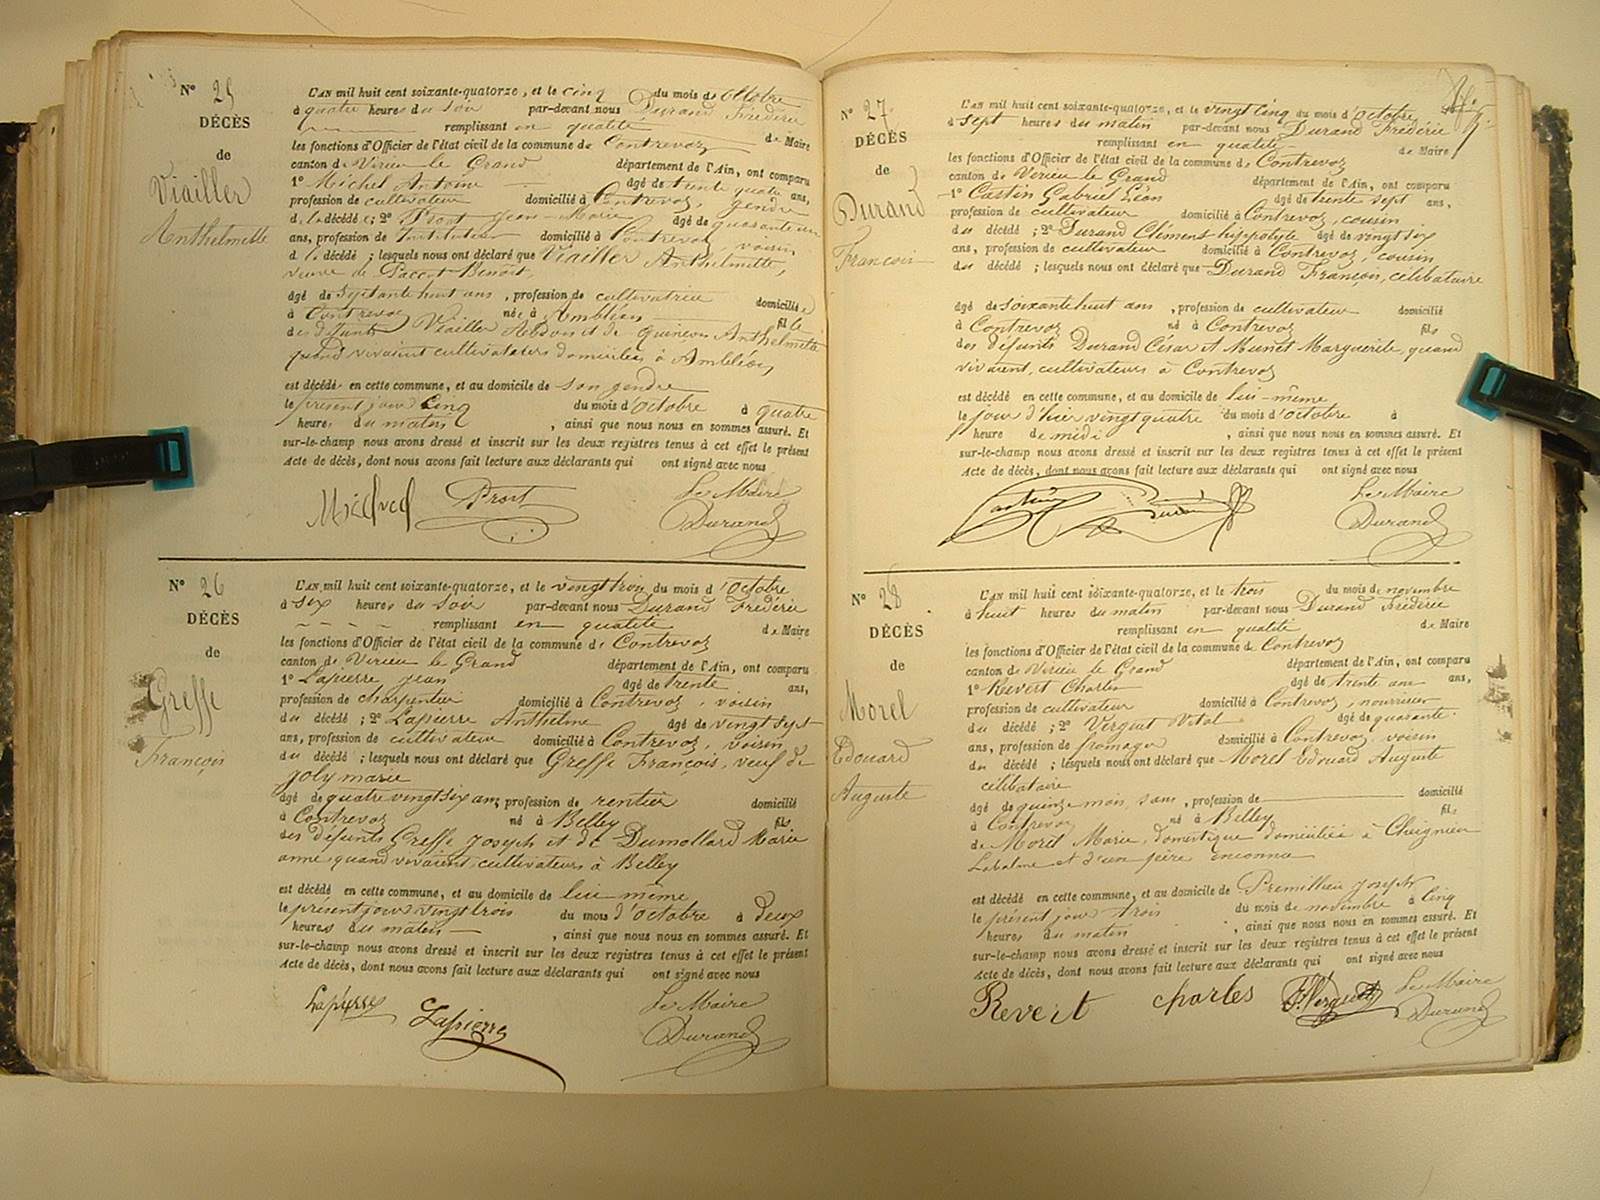 N° 25
DÉCÈS
de
Viailler
Anthelmette
L'AN mil huit cent soixante-quatorze, et le cinq du mois d'Octobre
à quatre heures du soir par-devant nous Durand Frédéric
remplissant en qualité de Maire
les fonctions d'Officier de l'état civil de la commune de Contrevoz
canton de Virieu le Grand département de l'Ain, ont comparu
1° Michel Antoine âgé de trente quatre ans,
profession de cultivateur domicilié à Contrevoz, gendre
d la décédé e; 2° Prost Jean-Marie âgé de quarante un
ans, profession de Instituteur domicilié à Contrevoz, voisin
d la décédé ; lesquels nous ont déclaré que Viailler Anthelmette,
veuve de Benoit,
âgé de septante huit ans, profession de cultivatrice domicilié e
à Contrevoz née à Ambléon fille
des défunts Viailler et de Anthelmette
quand vivaient cultivateurs domiciliés à Ambléon,
est décédé en cette commune, et au domicile de son gendre
le présent jour cinq du mois d'Octobre à quatre
heures du matin , ainsi que nous nous en sommes assuré. Et
sur-le-champ nous avons dressé et inscrit sur les deux registres tenus à cet effet le présent
Acte de décès, dont nous avons fait lecture aux déclarants qui ont signé avec nous
Michel Prost Le Maire
Durand
N° 26
DÉCÈS
de
Greffe
François
L'AN mil huit cent soixante-quatorze, et le vingt trois du mois d'Octobre
à six heures du soir par-devant nous Durand Frédéric
remplissant en qualité de Maire
les fonctions d'Officier de l'état civil de la commune de Contrevoz
canton de Virieu le Grand département de l'Ain, ont comparu
1° Lapierre jean âgé de trente ans,
profession de charpentier domicilié à Contrevoz, voisin
du décédé ; 2° Lapierre Anthelme âgé de vingt sept
ans, profession de cultivateur domicilié à Contrevoz, voisin
du décédé ; lesquels nous ont déclaré que Greffe François, veuf de
joly marie
âgé de quatre vingt six ans, profession de rentier domicilié
à Contrevoz né à Belley fils
des défunts Greffe joseph et de Dumollard Marie
anne, quand vivaient cultivateurs à Belley
est décédé en cette commune, et au domicile de lui même
le présent jour vingt trois du mois d'octobre à deux
heures du matin , ainsi que nous nous en sommes assuré. Et
sur-le-champ nous avons dressé et inscrit sur les deux registres tenus à cet effet le présent
Acte de décès, dont nous avons fait lecture aux déclarants qui ont signé avec nous
Lapierre Lapierre Le Maire
Durand
N° 27
DÉCÈS
de
Durand
François
L'AN mil huit cent soixante-quatorze, et le vingt cinq du mois d'Octobre
à sept heures du matin par-devant nous Durand Frédéric
remplissant en qualité de Maire
les fonctions d'Officier de l'état civil de la commune de Contrevoz
canton de Virieu le Grand département de l'Ain, ont comparu
1° Castin Gabriel Léon âgé de trente sept ans,
profession de cultivateur domicilié à Contrevoz, cousin
du décédé ; 2° Durand Clément hippolyte âgé de vingt six
ans, profession de cultivateur domicilié à Contrevoz, cousin
du décédé ; lesquels nous ont déclaré que Durand François, célibataire
âgé de soixante huit ans, profession de cultivateur domicilié
à Contrevoz né à Contrevoz fils
des défunts Durand César et Marguerite, quand
vivaient, cultivateurs à Contrevoz
est décédé en cette commune, et au domicile de lui-même
le jour d'hier vingt quatre du mois d'octobre à
heure de midi , ainsi que nous nous en sommes assuré. Et
sur-le-champ nous avons dressé et inscrit sur les deux registres tenus à cet effet le présent
Acte de décès, dont nous avons fait lecture aux déclarants qui ont signé avec nous
Castin Durand Le Maire
Durand
N° 28
DÉCÈS
de
Morel
Edouard
Auguste
L'AN mil huit cent soixante-quatorze, et le trois du mois de novembre
à huit heures du matin par-devant nous Durand Frédéric
remplissant en qualité de Maire
les fonctions d'Officier de l'état civil de la commune de Contrevoz
canton de Virieu le Grand département de l'Ain, ont comparu
1° Revert Charles âgé de trente ans ans,
profession de cultivateur domicilié à Contrevoz, nourricier
du décédé ; 2° Verguet Vital âgé de quarante
ans, profession de fromager domicilié à Contrevoz, voisin
du décédé ; lesquels nous ont déclaré que Morel Edouard Auguste
célibataire
âgé de quinze mois, sans, profession de domicilié
à Contrevoz né à Belley fils
de Morel Marie, domestique domiciliée à Cheignieu
Labalme et d'un père inconnu
est décédé en cette commune, et au domicile de Premillieu joseph
le présent jour trois du mois de novembre à cinq
heures du matin , ainsi que nous nous en sommes assuré. Et
sur-le-champ nous avons dressé et inscrit sur les deux registres tenus à cet effet le présent
Acte de décès, dont nous avons fait lecture aux déclarants qui ont signé avec nous
Revert charles Verguet Le Maire
Durand